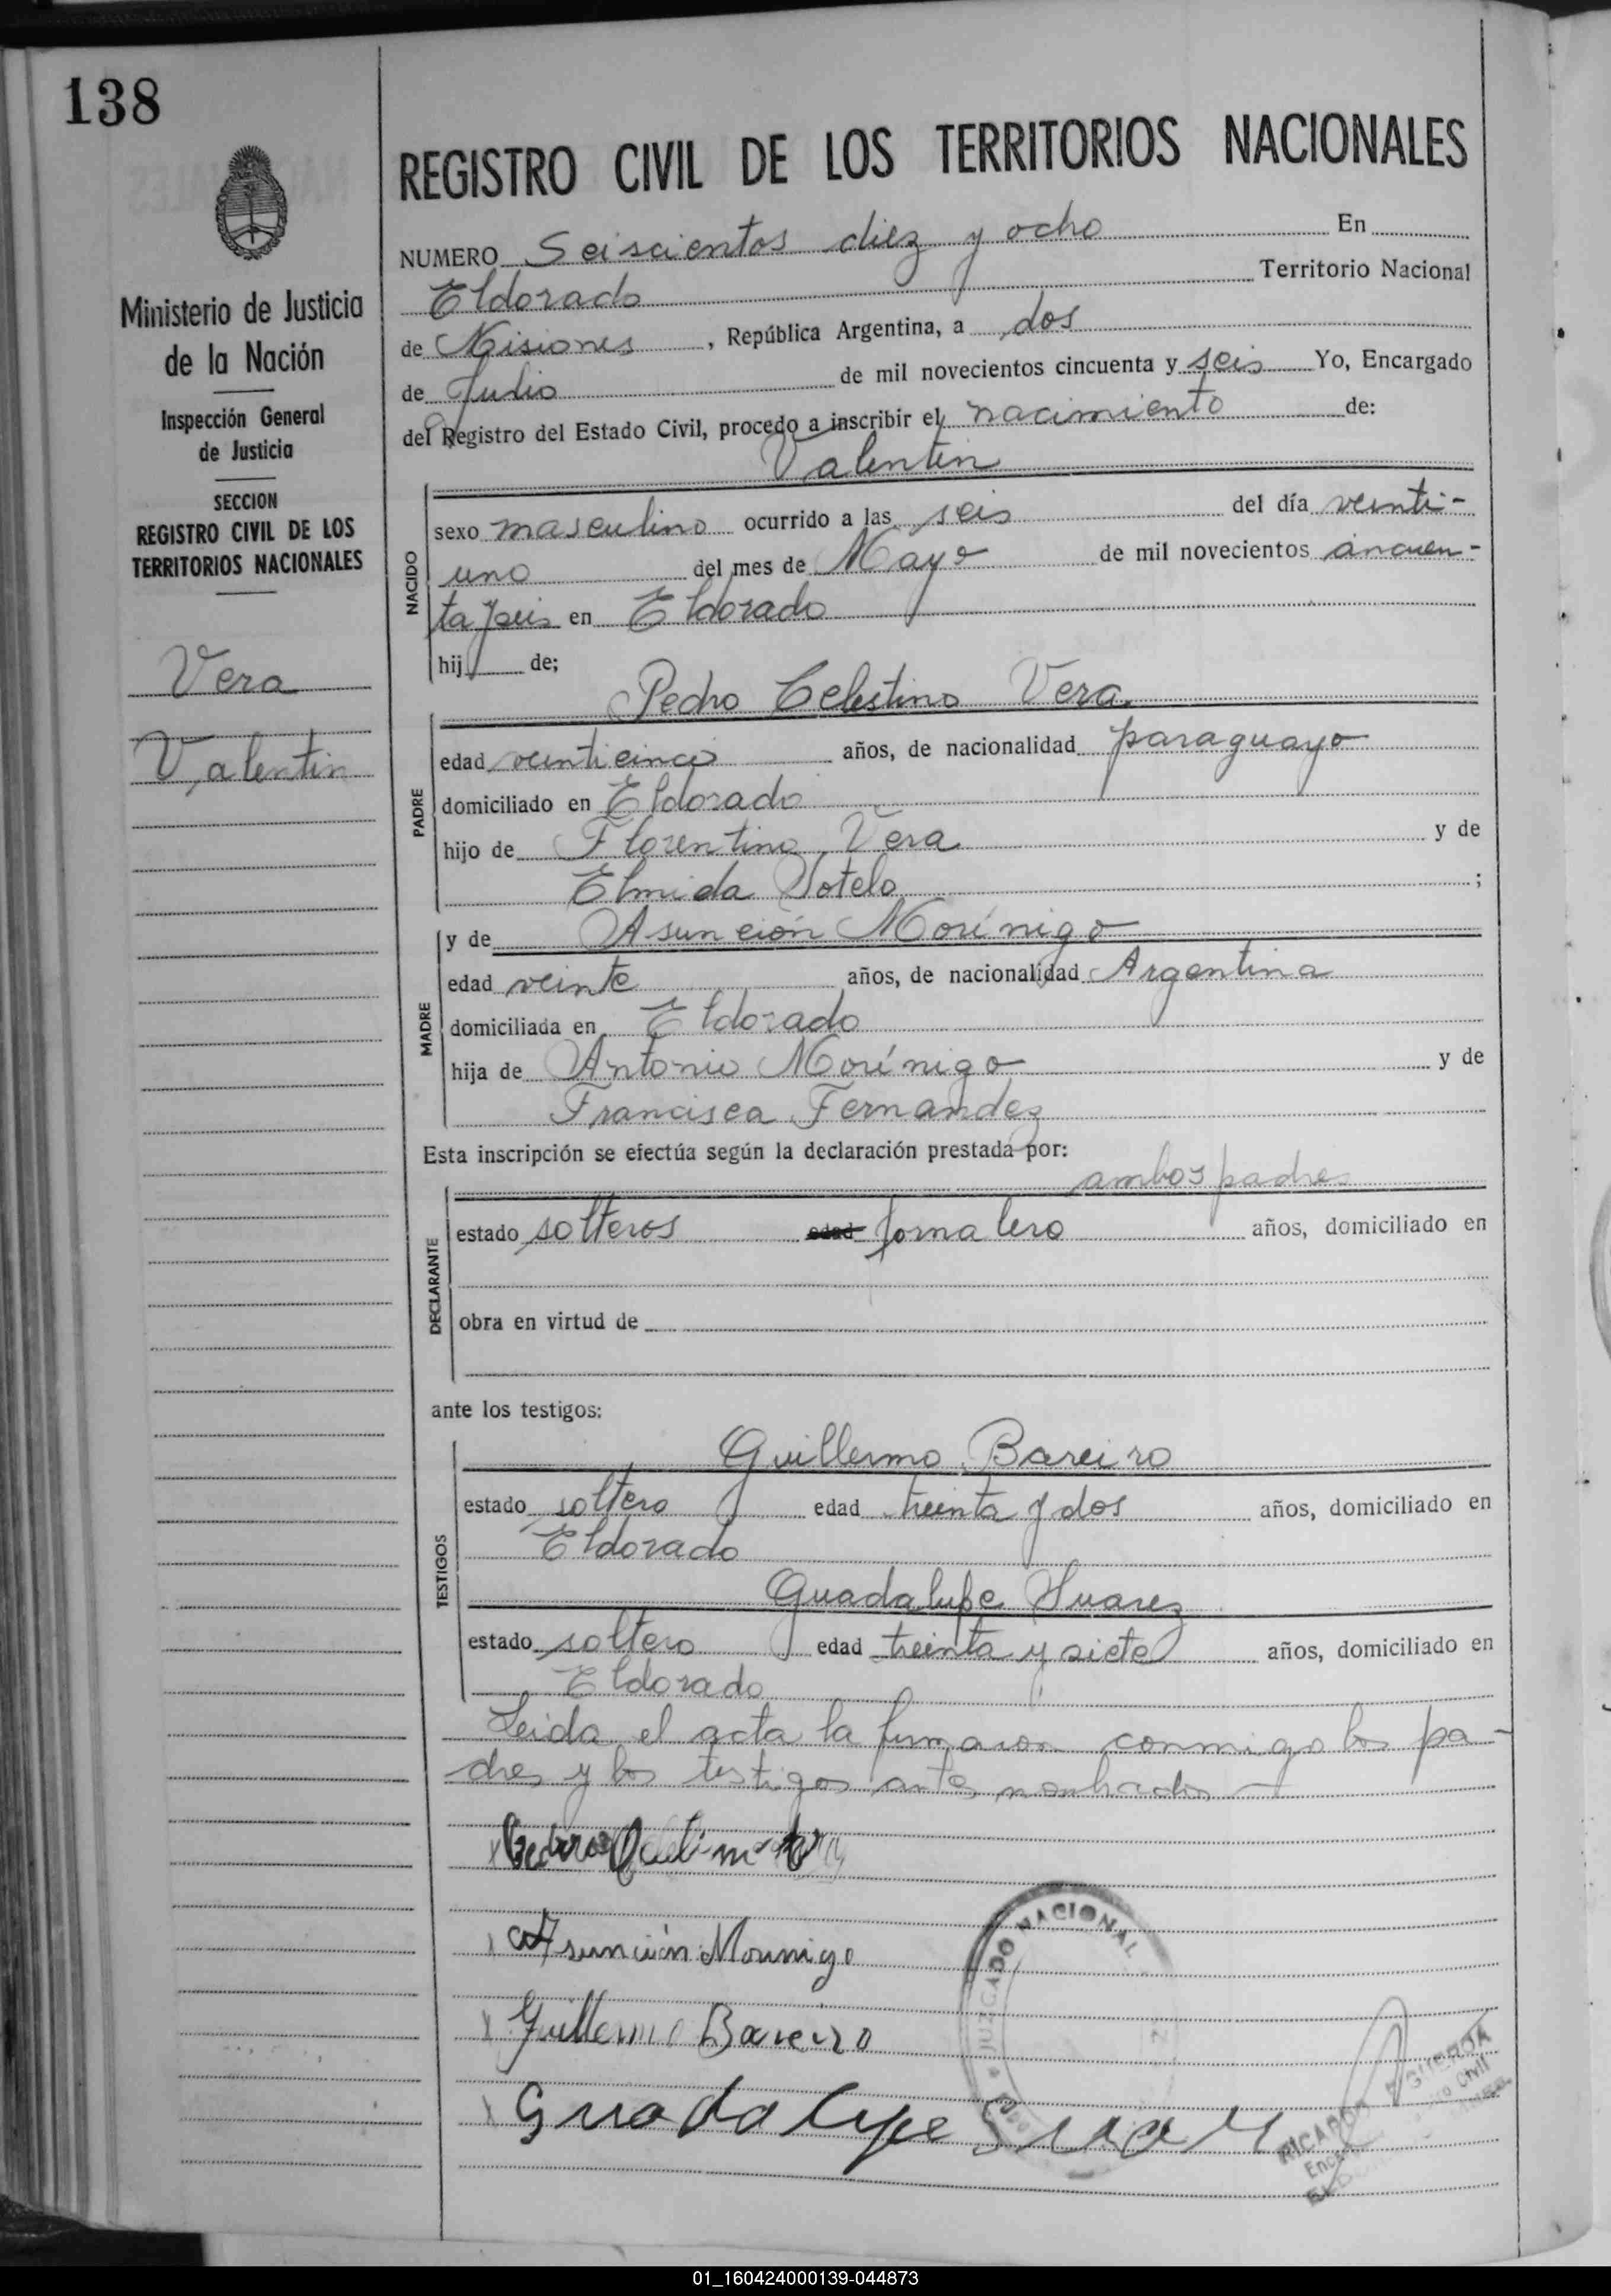 138
REGISTRO CIVIL DE LOS TERRITORIOS NACIONALES
Ministerio de Justicia
de la Nación
Inspección General
de Justicia
SECCION
REGISTRO CIVIL DE LOS
TERRITORIOS NACIONALES
Vera
Valentin
NUMERO Seiscientos diez y ocho En
Eldorado Territorio Nacional
de Misiones, República Argentina, a dos
de Julio de mil novecientos cincuenta y seis Yo, Encargado
del Registro del Estado Civil, procedo a inscribir el nacimiento de:
Valentin
NACIDO
sexo masculino ocurrido a las seis del día veinti-
uno del mes de Mayo de mil novecientos cincuen-
ta y seis en Eldorado
hij de;
Pedro Celestino Vera
PADRE
edad veinticinco años, de nacionalidad paraguayo
domiciliado en Eldorado
hijo de Florentino Vera y de
Elmida Sotelo ;
MADRE
y de Asunción Morínigo
edad veinte años, de nacionalidad Argentina
domiciliada en Eldorado
hija de Antonio Morínigo y de
Francisca Fernandez
Esta inscripción se efectúa según la declaración prestada por:
ambos padres
DECLARANTE
estado solteros edad jornalero años, domiciliado en
obra en virtud de
ante los testigos:
TESTIGOS
Guillermo Bareiro
estado soltero edad treinta y dos años, domiciliado en
Eldorado
Guadalupe Suarez
estado soltero edad treinta y siete años, domiciliado en
Eldorado
Leida el acta la firmaron conmigo los pa-
dres y los testigos antes nombrados
Asunción Morinigo
JUZGADO NACIONAL
Guillermo Bareiro
Guadalupe Suarez
RICARDO FIGUEROA
01_160424000139-044873